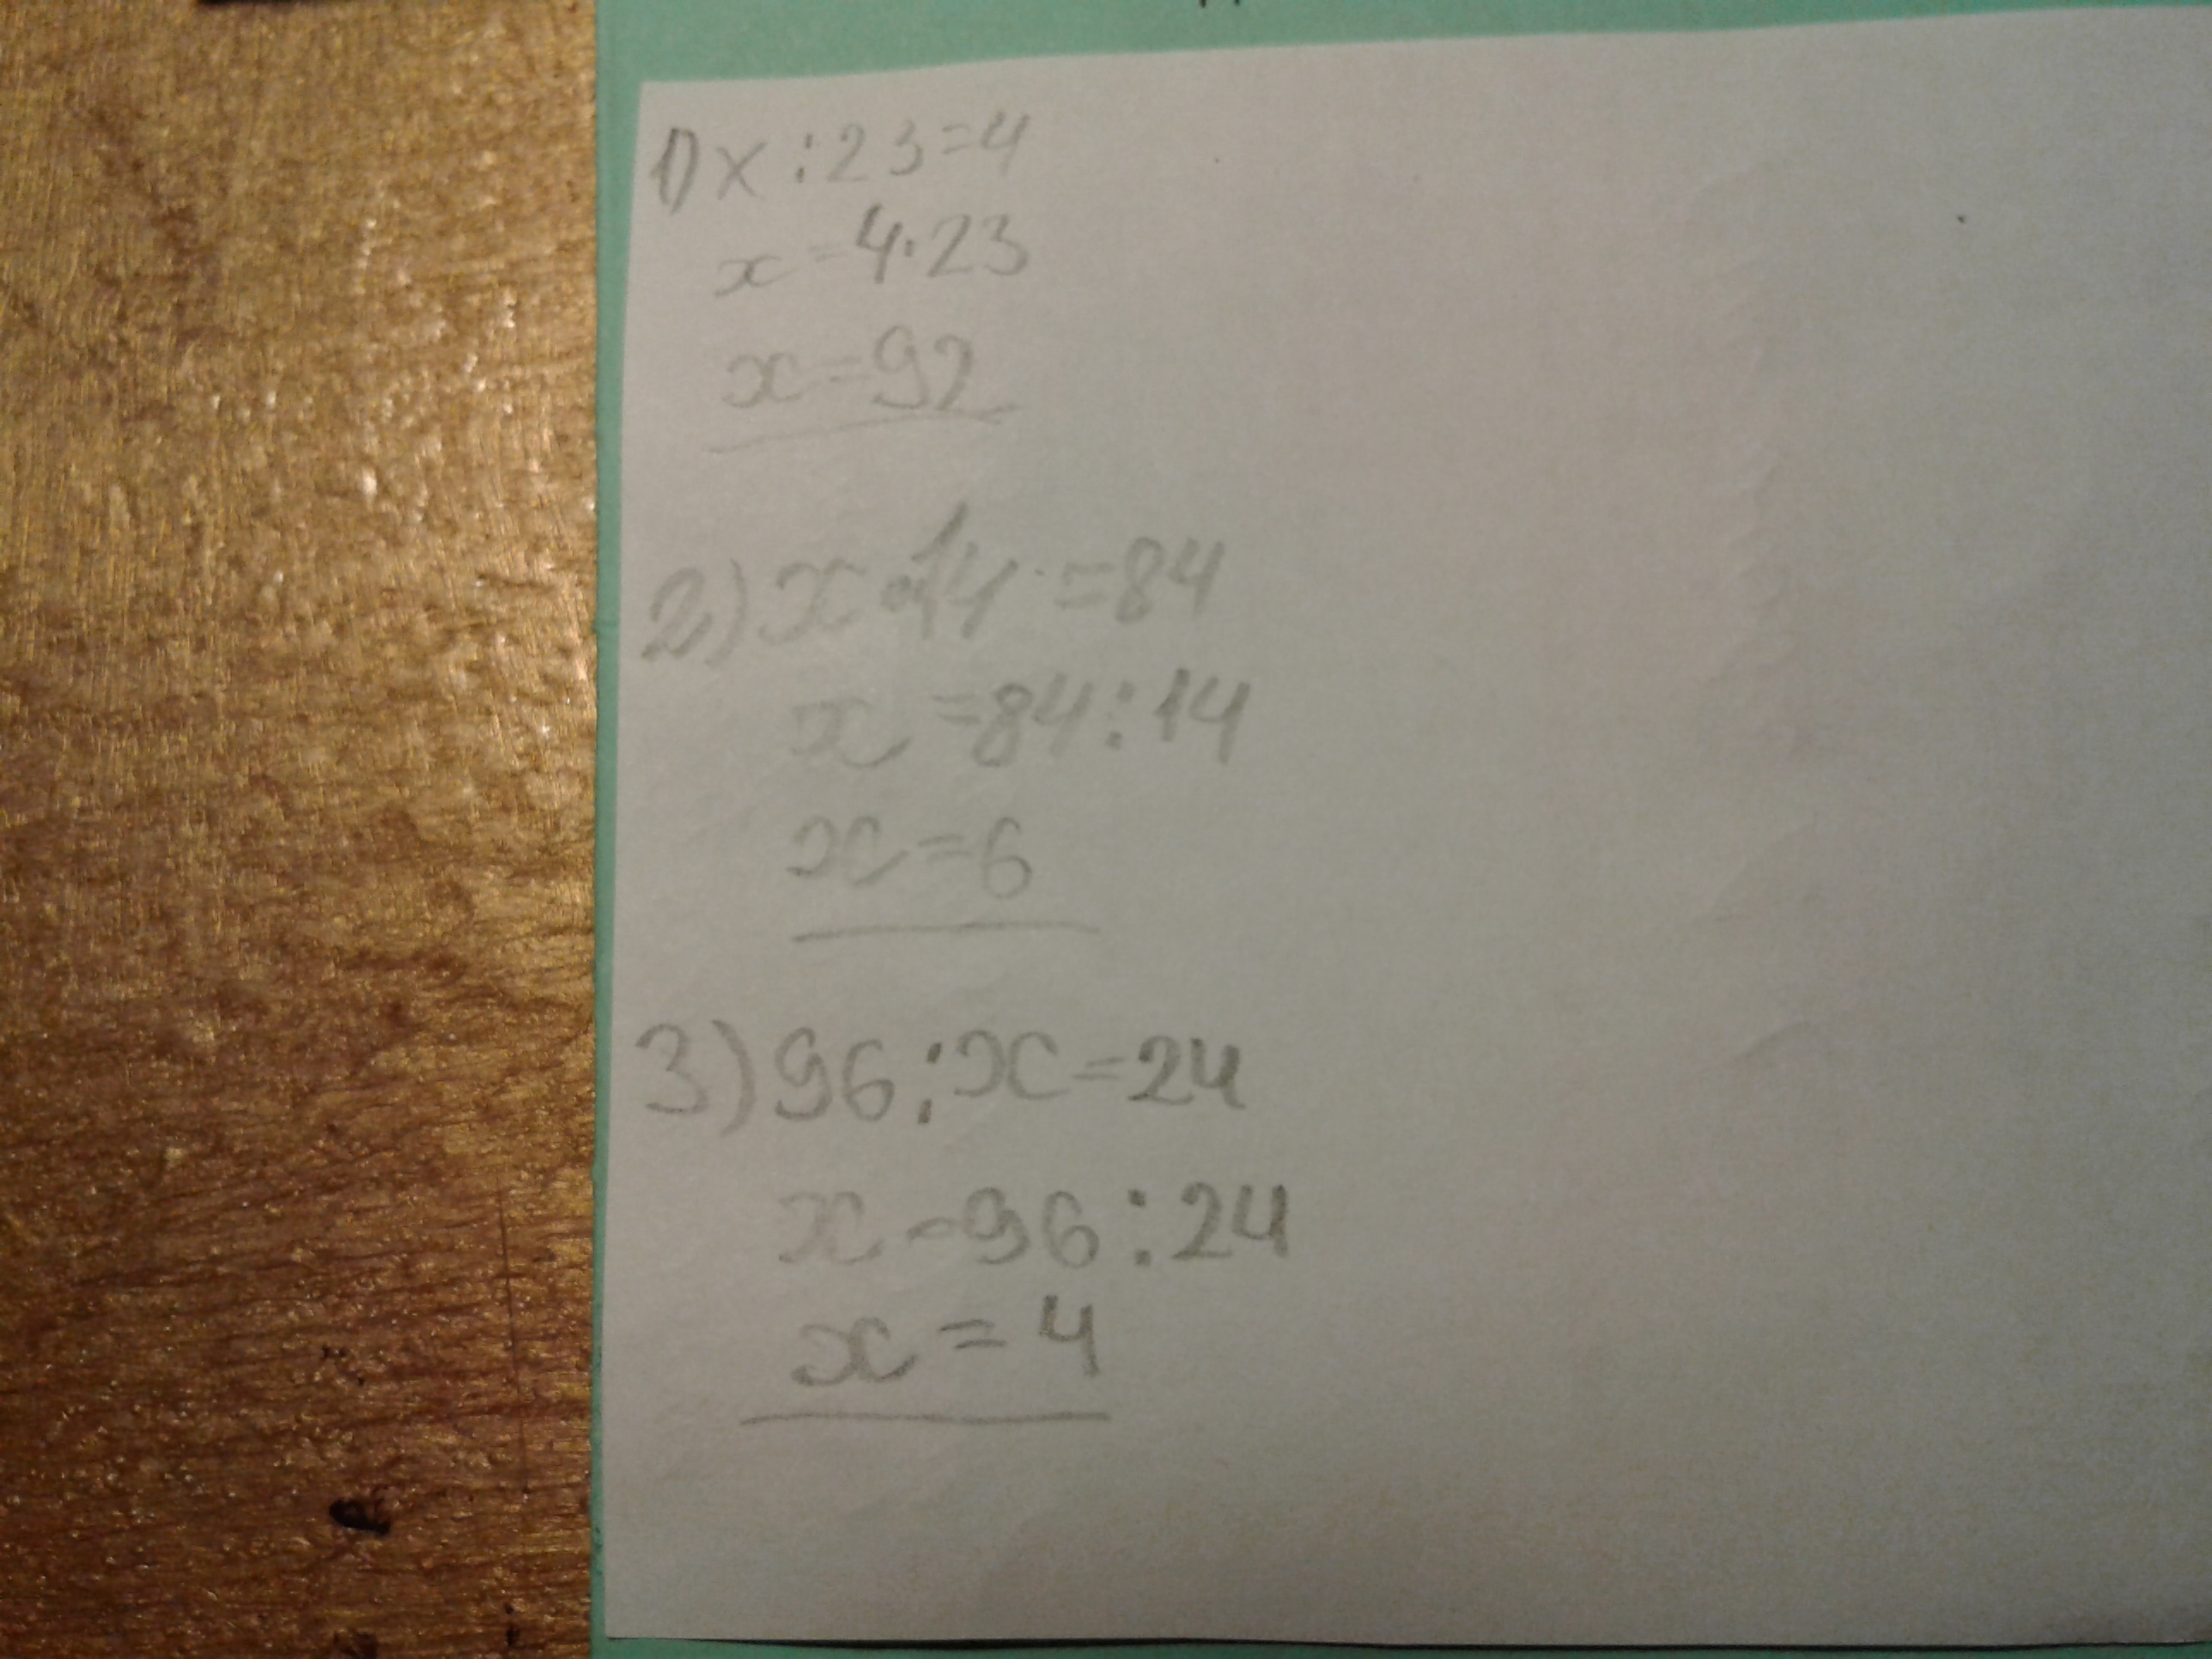 1) x:23=4
x=4·23
x=92
2) x·14=84
x=84:14
x=6
3) 96:x=24
x=96:24
x=4